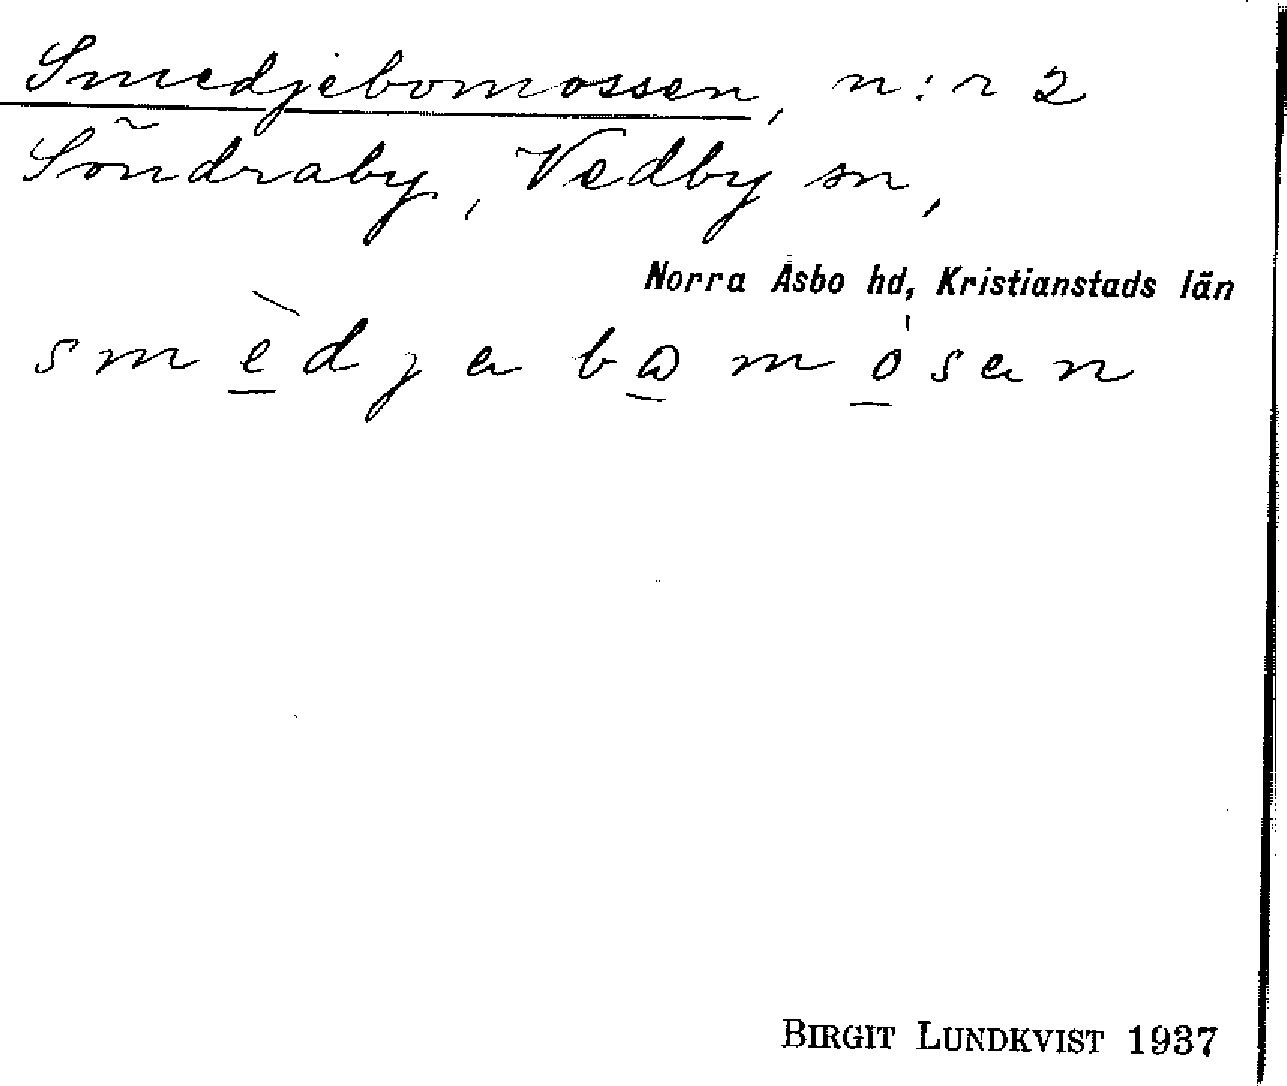 Smedjebomossen, n:r 2
Söndraby, Vedby sn,
Norra Åsbo hd, Kristianstads län
smèdjabωmósan
BIRGIT LUNDKVIST 1937